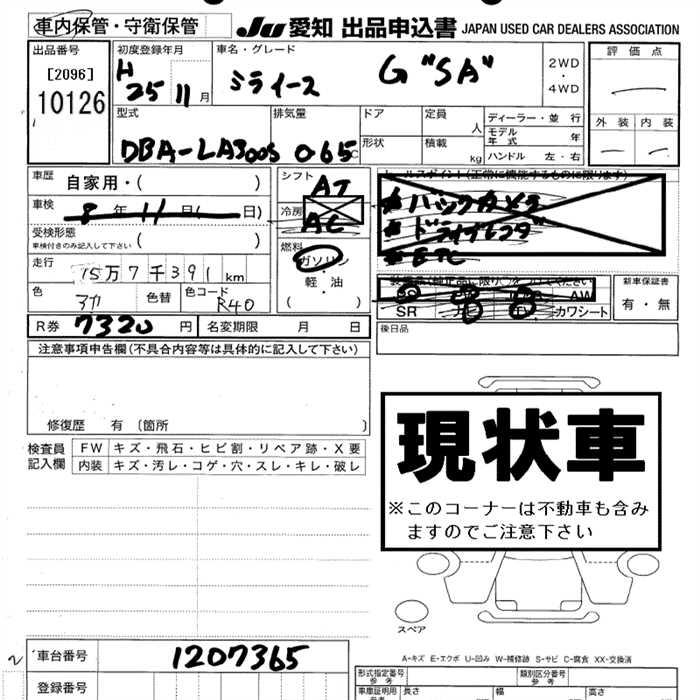 車内保管・守衛保管 JU 愛知 出品申込書 JAPAN USED CAR DEALERS ASSOCIATION
出品番号
[2096]
10126
初度登録年月
H 25 11 月
車名・グレード
ミライース G "SA"
2WD
・
4WD
評価点
外装 内装
型式
DBA-LA300S
排気量
065
ドア
形状
定員
人
積載
kg
ディーラー・並行
モデル年式 年
ハンドル 左・右
車歴 自家用・( )
車検 8 年 11 日( 日)
受検形態
車検付きのみ記入して下さい ( )
走行 15万7千391km
色 アカ 色替 色コード R40
シフト AT
冷房 AC
燃料
ガソリン
・
軽・油
( )
セールスポイント(正常に機能するものに限ります)
*バックカメラ
*ドライブレコーダー
*ETC
AW
SR カワシート
新車保証書
有・無
R券 7320 円 名変期限 月 日
後日品
注意事項申告欄(不具合内容等は具体的に記入して下さい)
修復歴 有〔箇所 〕
検査員記入欄
FW キズ・飛石・ヒビ割・リペア跡・X要
内装 キズ・汚レ・コゲ・穴・スレ・キレ・破レ
現状車
※このコーナーは不動車も含み
ますのでご注意下さい
スペア
A-キズ E-エクボ U-凹み W-補修跡 S-サビ C-腐食 XX-交換済
車台番号 1207365
登録番号
型式指定番号
参考
類別区分番号
参考
車庫証明用
参考
長さ 幅 高さ